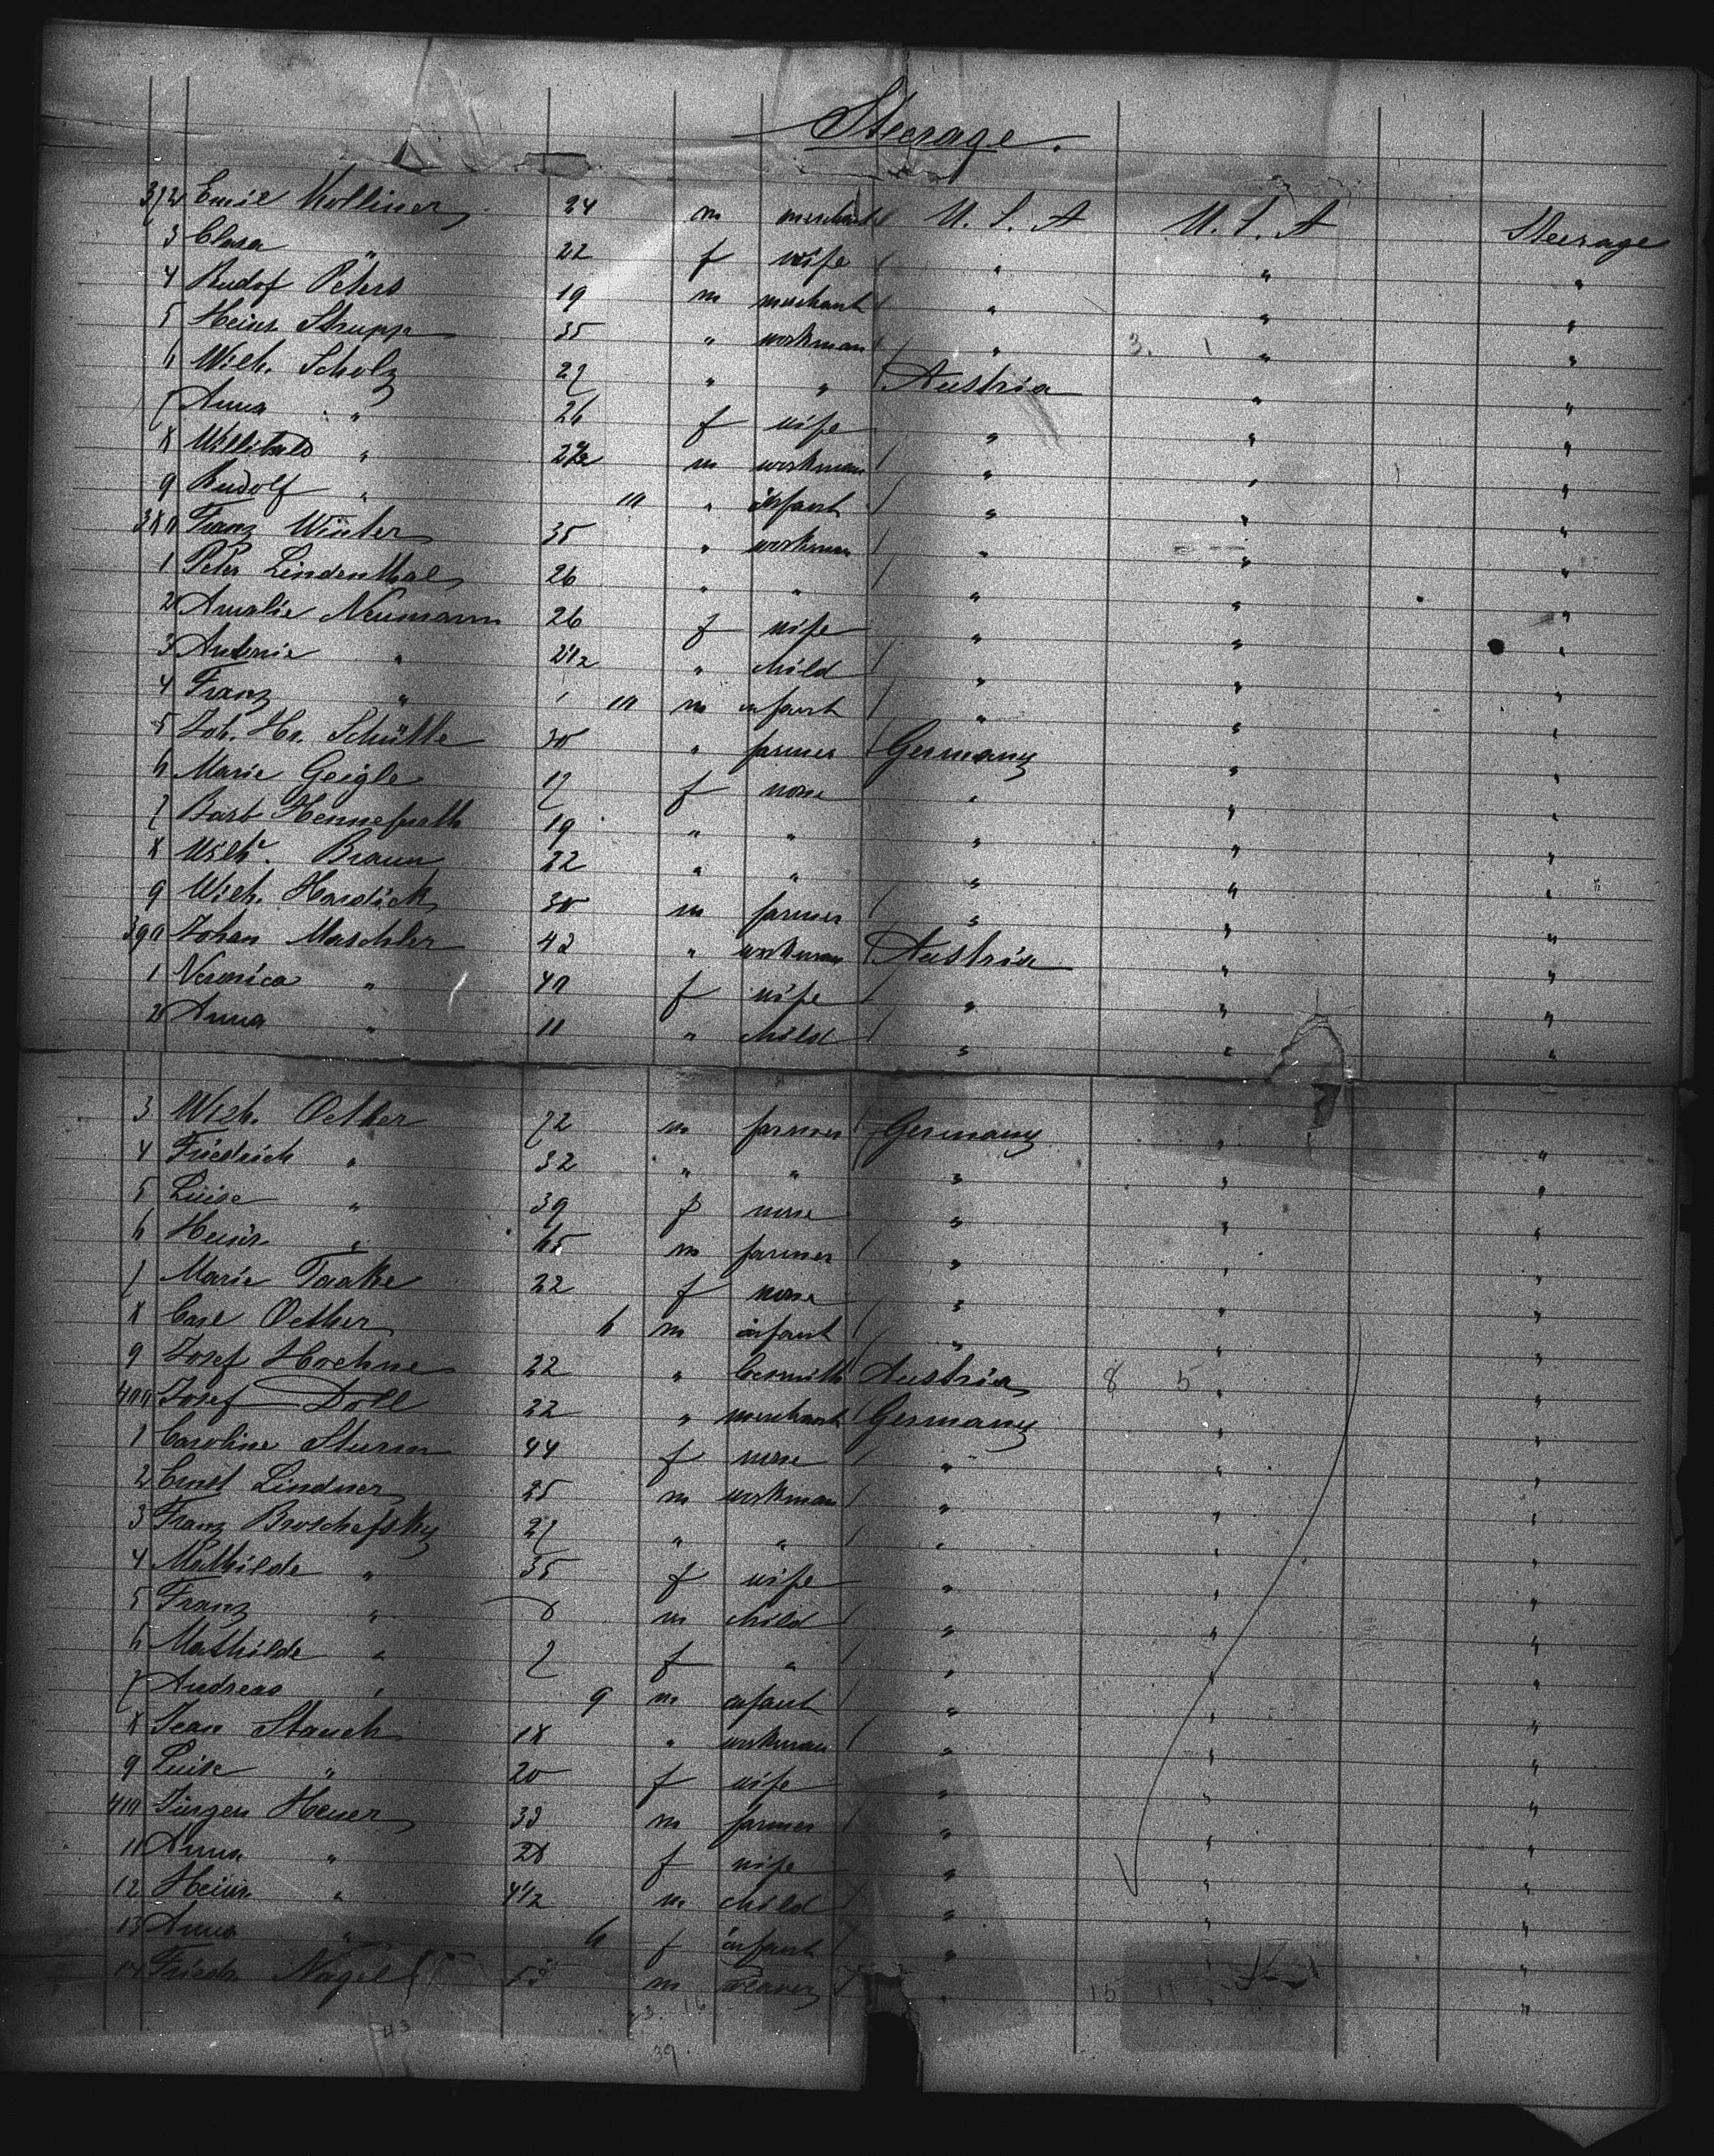 Steerage.
372 Emil Kolliner 24 m merchant U. S. A U. S. A Steerage
3 Clara " 22 f wife " " "
4 Rudof Peters 19 m merchant " " "
5 Heinr. Strupp 35 " workman " 3. 1 " "
6 Wilh. Scholz 27 " " Austria " "
7 Anna " 26 f wife " " "
8 Willibald " m workman " " "
9 Rudolf " 10 " infant " " "
380 Franz Winter 35 " workman " " "
1 Peter Lindenthal 26 " " " " "
2 Amalie Neumann 26 f wife " " "
3 Antonie " 2 1/2 " child " " "
4 Franz " 10 m infant " " "
5 Joh. Hr. Schütte 30 " farmer Germany " "
6 Marie Geigle 17 f none " " "
7 Barb Hennefarth 19 " " " " "
8 Wilh. Braun 22 " " " " "
9 Wilh. Hardick 30 m farmer " " "
390 Johan Maschler 42 " workman Austria " "
1 Veronica " 40 f wife " " "
2 Anna " 11 " child " " "
3 Wilh. Oetker 72 m farmer Germany " "
4 Friedrich " 32 " " " " "
5 Luise " 39 f none " " "
6 Heinr " 65 m farmer " " "
7 Marie Taake 22 f none " " "
8 Carl Oetker 6 m infant " " "
9 Josef Hoehne 22 " locsmith Austria 8 5 " "
400 Josef Doll 22 " merchant Germany " "
1 Caroline Sturm 44 f none " " "
2 Ernst Lindner 25 m workman " " "
3 Franz Broschefsky 27 " " " " "
4 Mathilde " 35 f wife " " "
5 Franz " 8 m child " " "
6 Mathilde " 7 f " " " "
7 Andreas " 9 m infant " " "
8 Jean Stauch 18 " workman " " "
9 Luise " 20 f wife " " "
410 Jürgen Heuer 33 m farmer " " "
11 Anna " 28 f wife " " "
12 Heinr. " 4 1/2 m child " " "
13 Anna " 6 f infant " " "
14 Friedr. Nagel m weaver " 15 11 " "
43 23 16
39